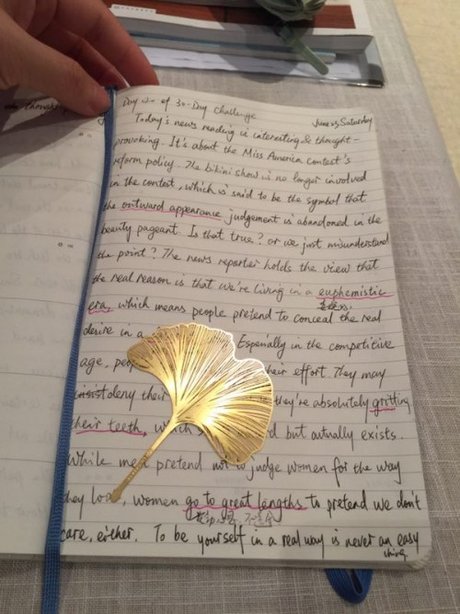 Day two of 30-Day Challenge
June 23, Saturday
Today's news reading is interesting & thought-
provoking. It's about the Miss America contest's
reform policy. The bikini show is no longer involved
in the contest, which is said to be the symbol that
the outward appearance judgement is abandoned in the
beauty pageant. Is that true? or we just misunderstand
the point? The news reporter holds the view that
the real reason is that we're living in a euphemistic
era, which means people pretend to conceal the real
desire in a Especially in the competitive
age, their effort. They may
deny their they're absolutely gritting
their teeth, but actually exists.
While men pretend not to judge women for the way
they look, women go to great lengths to pretend we don't
care, either. To be yourself in a real way is never an easy
thing.